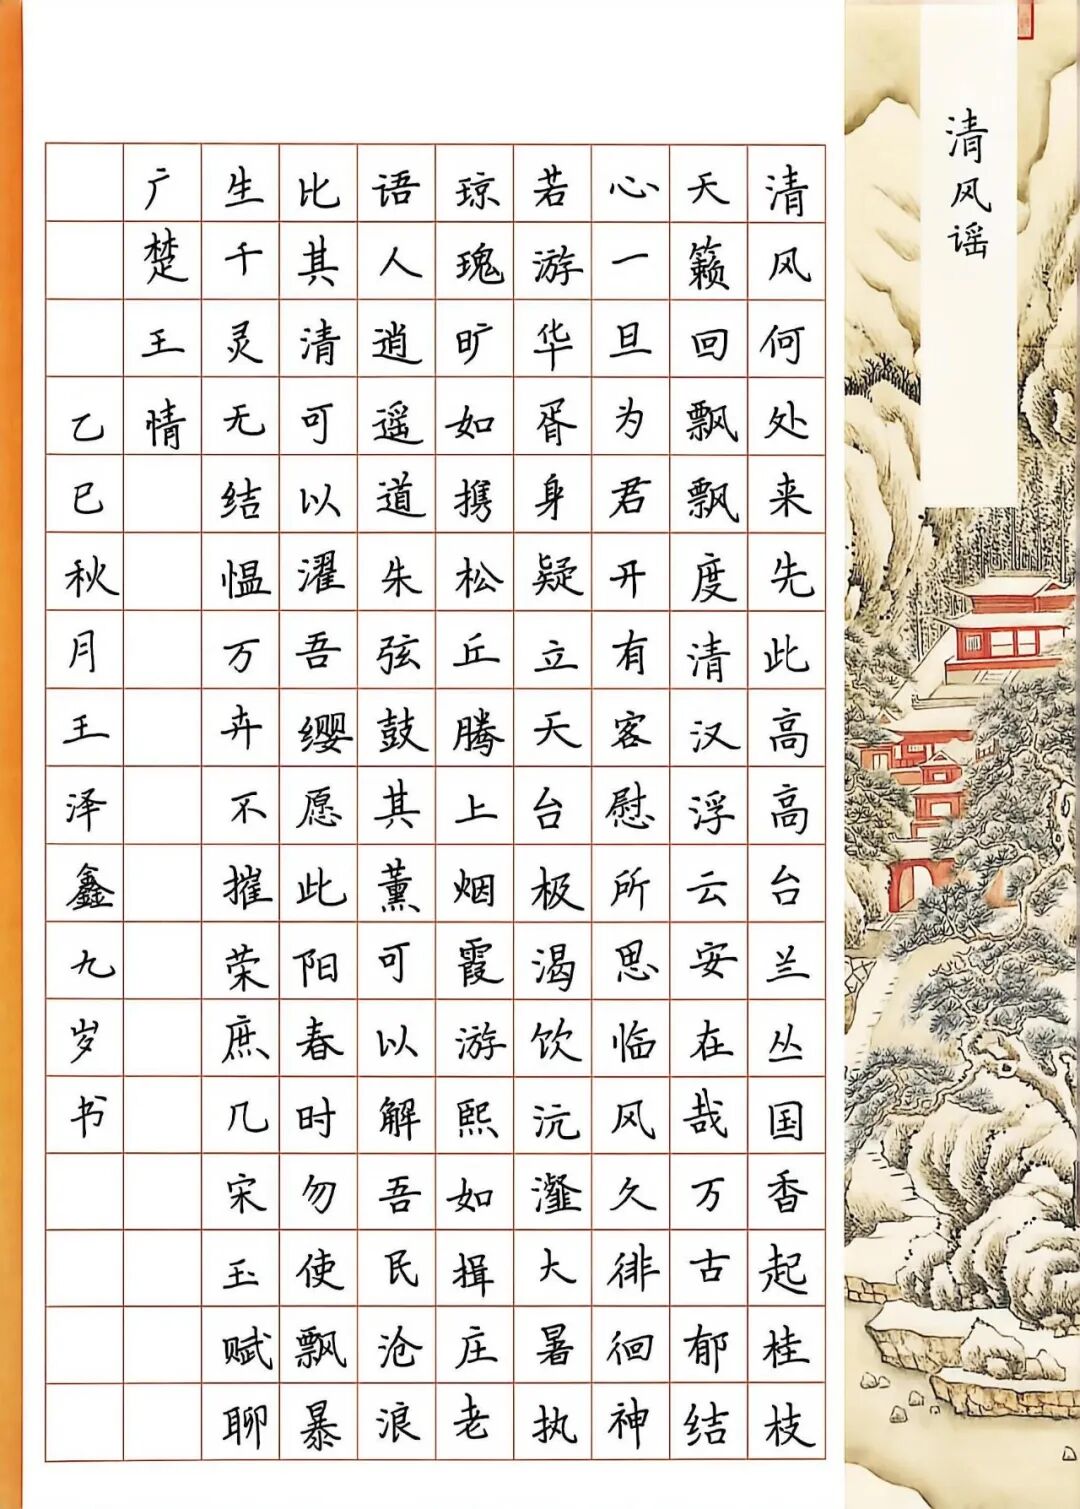 清风谣
清风何处来先此高高台兰丛国香起桂枝
天籁回飘飘度清汉浮云安在哉万古郁结
心一旦为君开有客慰所思临风久徘徊神
若游华胥身疑立天台极渴饮沆瀣大暑执
琼瑰旷如携松丘腾上烟霞游熙如揖庄老
语人逍遥道朱弦鼓其薰可以解吾民沧浪
比其清可以濯吾缨愿此阳春时勿使飘暴
生千灵无结愠万卉不摧荣庶几宋玉赋聊
广楚王情
乙巳秋月王泽鑫九岁书